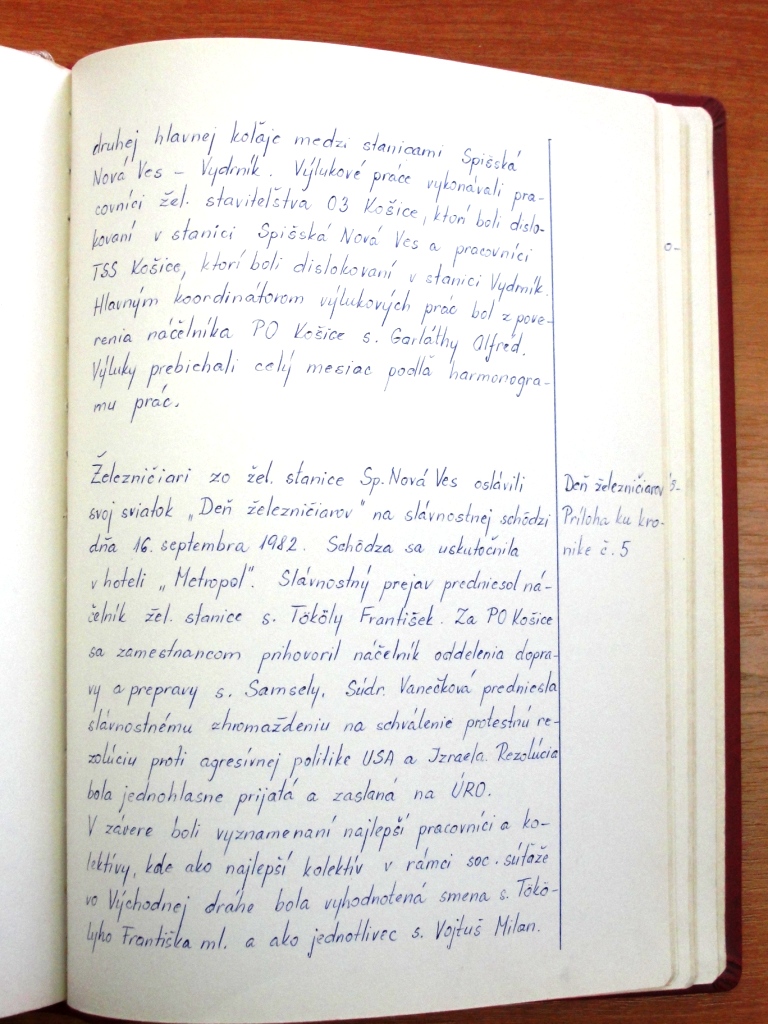 druhej hlavnej koľaje medzi stanicami Spišská
Nová Ves – Vydrník. Výlukové práce vykonávali pra-
covníci žel. staviteľstva 03 Košice, ktorí boli dislo-
kovaní v stanici Spišská Nová Ves a pracovníci
TSS Košice, ktorí boli dislokovaní v stanici Vydrník.
Hlavným koordinátorom výlukových prác bol z pove-
renia náčelníka PO Košice s. Garláthy Alfréd.
Výluky prebichali celý mesiac podľa harmonogra-
mu prác.
Železničiari zo žel. stanice Sp. Nová Ves oslávili
svoj sviatok „Deň železničiarov" na slávnostnej schôdzi
dňa 16. septembra 1982. Schôdza sa uskutočnila
v hoteli „Metropol". Slávnostný prejav predniesol ná-
čelník žel. stanice s. Tököly František. Za PO Košice
sa zamestnancom prihovoril náčelník oddelenia dopra-
vy a prepravy s. Samsely. Súdr. Vanečková predniesla
slávnostnému zhromaždeniu na schválenie protestnú re-
zolúciu proti agresívnej politike USA a Izraela. Rezolúcia
bola jednohlasne prijatá a zaslaná na ÚRO.
V závere boli vyznamenaní najlepší pracovníci a ko-
lektívy, kde ako najlepší kolektív v rámci soc. súťaže
vo Východnej dráhe bola vyhodnotená smena s. Tökö-
lyho Františka ml. a ako jednotlivec s. Vojtuš Milan.
Deň železničiarov
Príloha ku kro-
nike č. 5